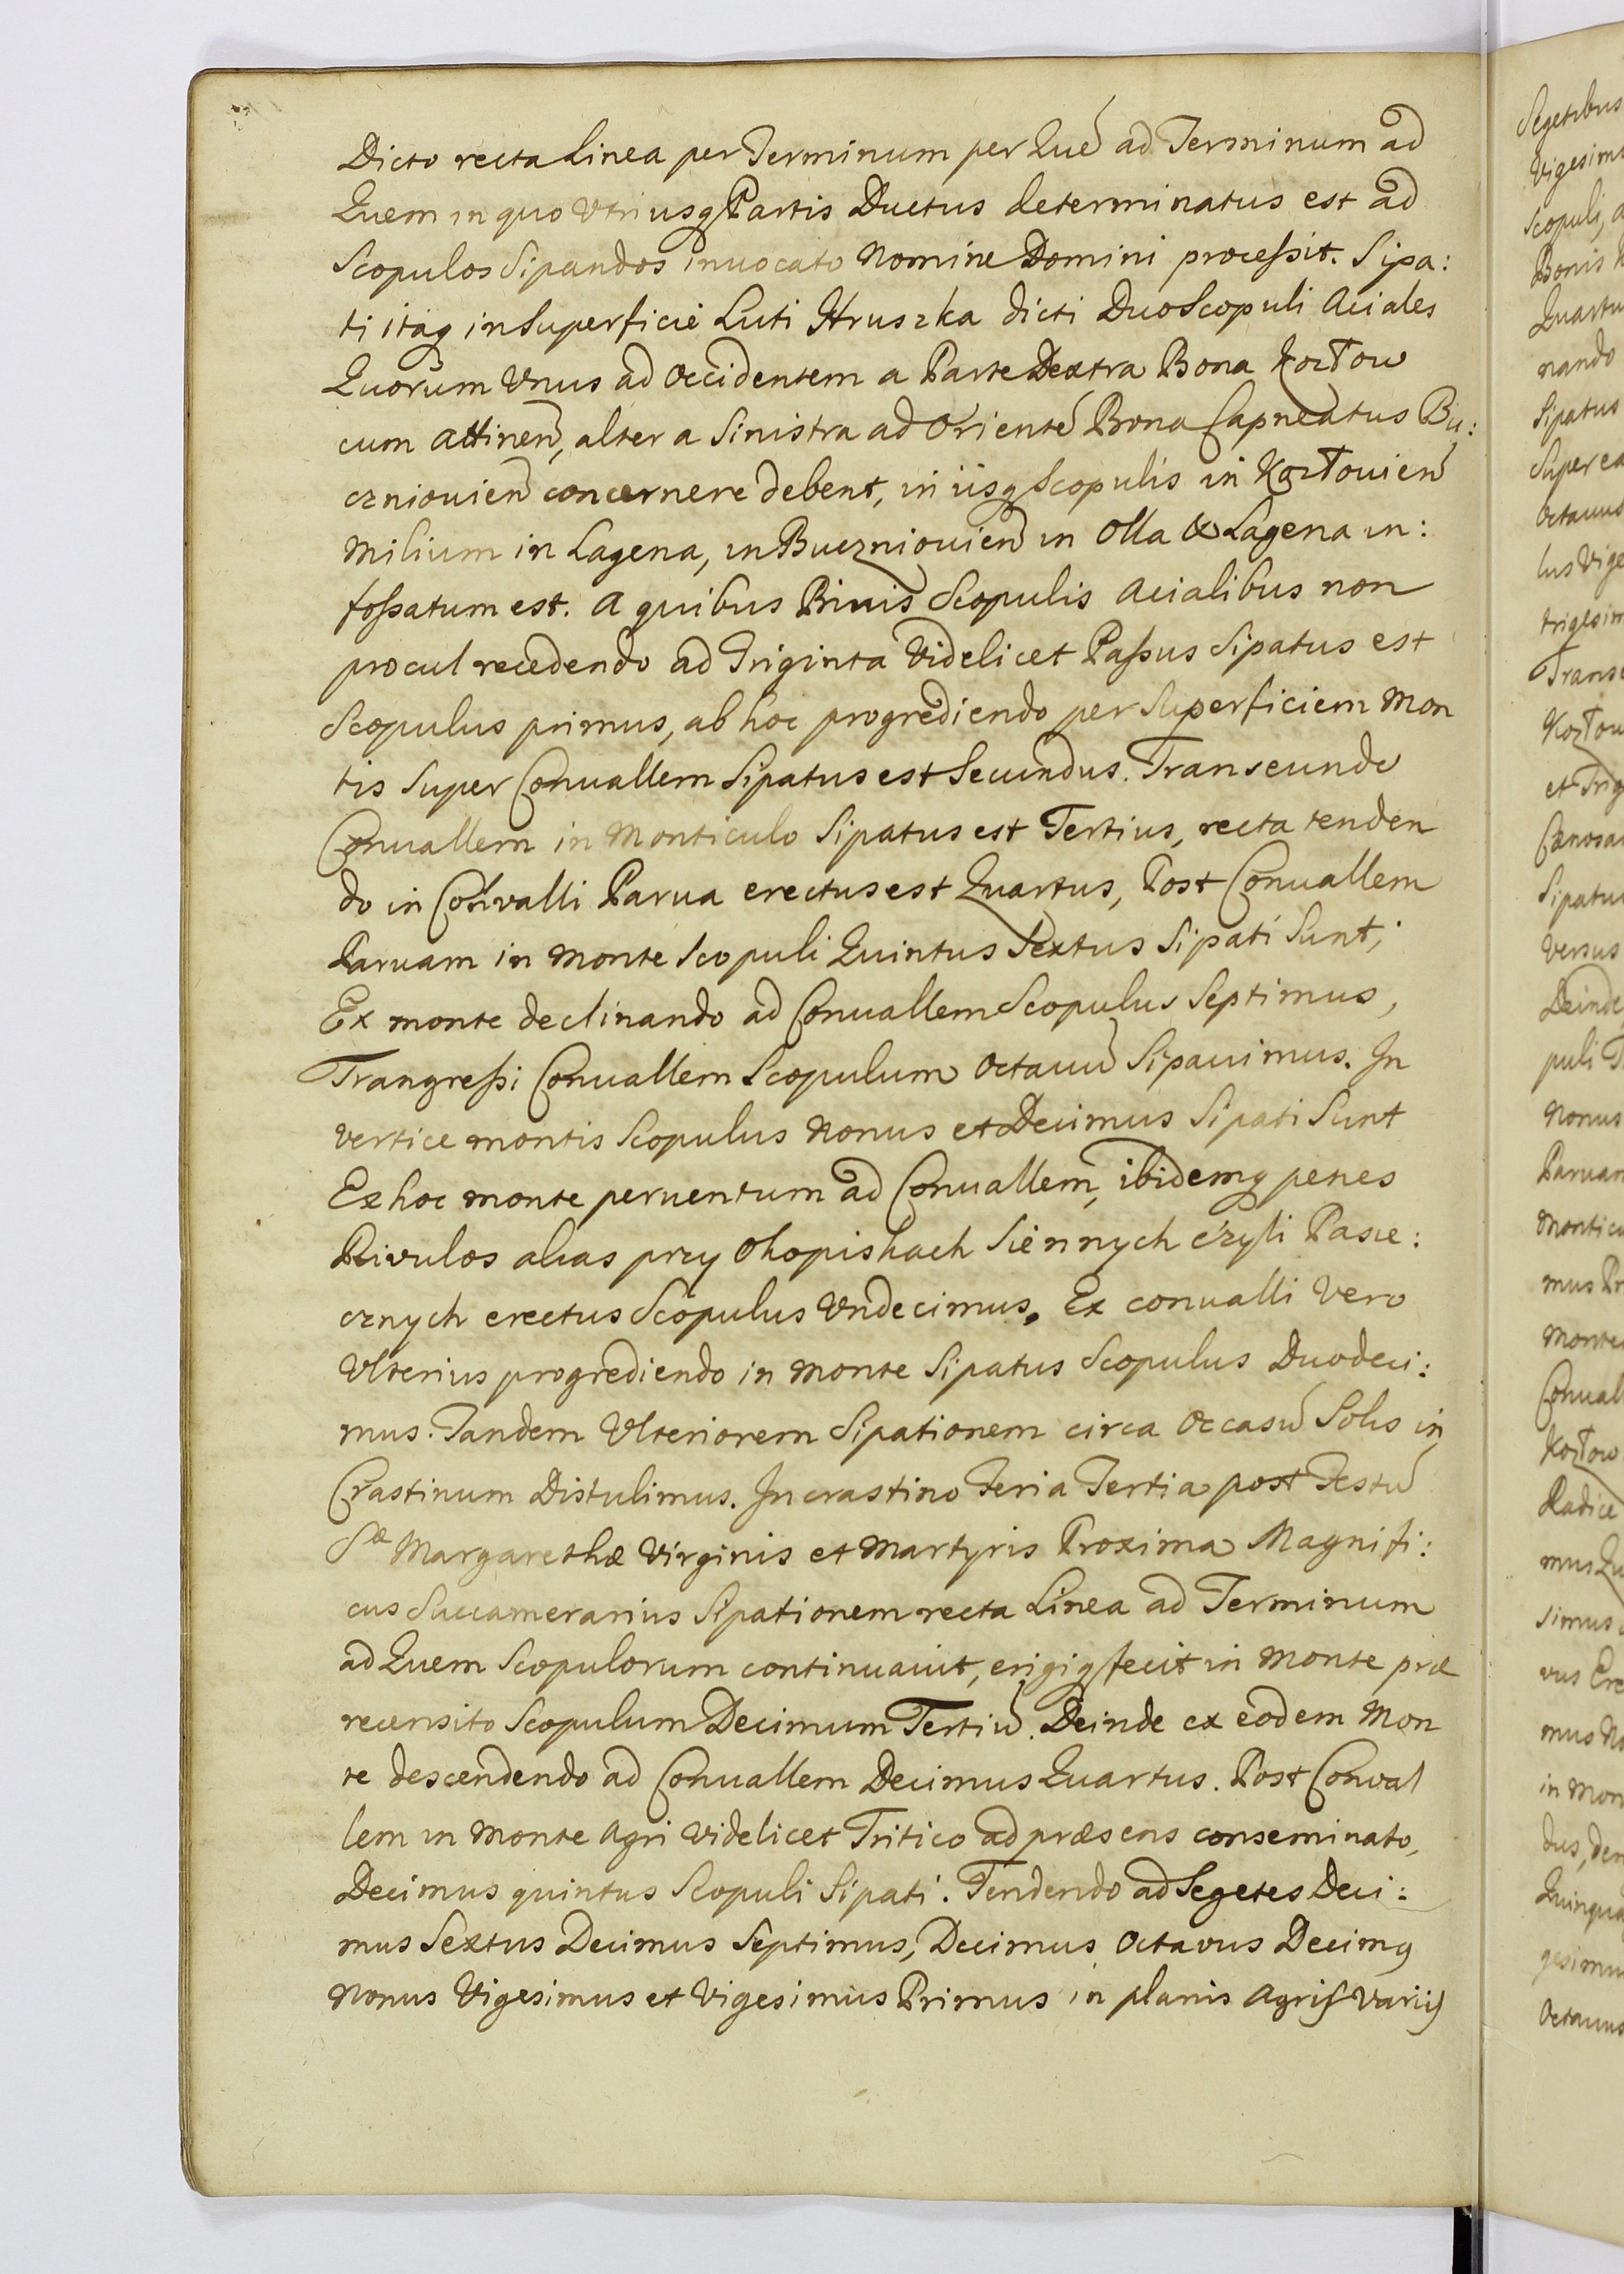 Dicto recta Linea per Terminum per Quē ad Terminum ad
Quem in quo Vtriusq Partis Ductus determinatus est ad
Scopulos Sipandos inuocato Nomine Domini processit. Sipa:
ti itaq in Superficie Luti Hruszka dicti Duo Scopuli Aciales
Quorum Vnus ad Occidentem a Parte Dextra Bona Kozłow
cum attinen̄, alter a Sinistra ad Orientē Bona Capneatus Bu:
czniouien̄ concernere debent, in iisq Scopulis in Kozłouien̄
Milium in Lagena, in Buczniouien̄ in Olla & Lagena in:
fossatum est. A quibus Binis Scopulis Acialibus non
procul recedendo ad Triginta Videlicet Passus Sipatus est
Scopulus primus, ab hoc progrediendo per Superficiem Mon
tis Super Conuallem Sipatus est Secundus. Transeundo
Conuallem in Monticulo Sipatus est Tertius, recta tenden
do in Convalli Parua erectus est Quartus, Post Conuallem
Paruam in Monte Scopuli Quintus Sextus Sipati Sunt;
Ex monte declinando ad Conuallem Scopulus Septimus,
Trangressi Conuallem Scopulum Octauū Sipauimus. In
vertice montis Scopulus Nonus et Decimus Sipati Sunt
Ex hoc monte peruentum ad Conuallem, ibidemq penes
Rivulos alias przy Okopiskach Siennych czyli Pasie:
cznych erectus Scopulus Vndecimus. Ex conualli Vero
Vlterius progrediendo in Monte Sipatus Scopulus Duodeci:
mus. Tandem Vlteriorem Sipationem circa Occasū Solis in
Crastinum Distulimus. In crastino Feria Tertia post Festū
Sæ Margarethæ Virginis et Martyris Proxima Magnifi:
cus Succamerarius Sipationem recta Linea ad Terminum
ad Quem Scopulorum continuauit, erigiq fecit in Monte præ
recensito Scopulum Decimum Tertiū. Deinde ex eodem Mon
te descendendo ad Conuallem Decimus Quartus. Post Conval
lem in Monte Agri videlicet Tritico ad præsens conseminato,
Decimus quintus Scopuli Sipati. Tendendo ad Segetes Deci:
mus Sextus Decimus Septimus, Decimus Octavus Decimq
Nonus Vigesimus et Vigesimus Primus in planis Agris Variis